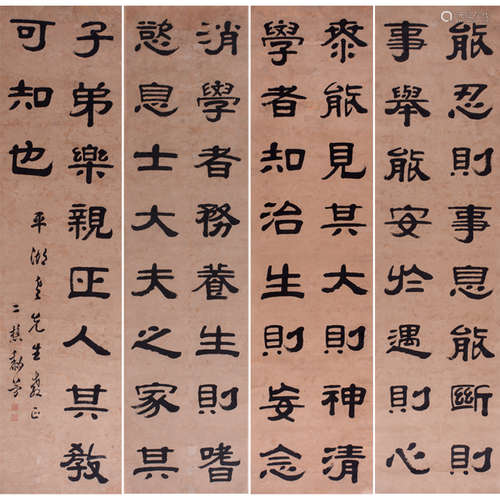 能忍則事息能斷則
事舉能安於遇則心
泰能見其大則神清
學者知治生則妄念
消學者務養生則嗜
慾息士大夫之家其
子弟樂親正人其教
可知也
平湖 先生 正